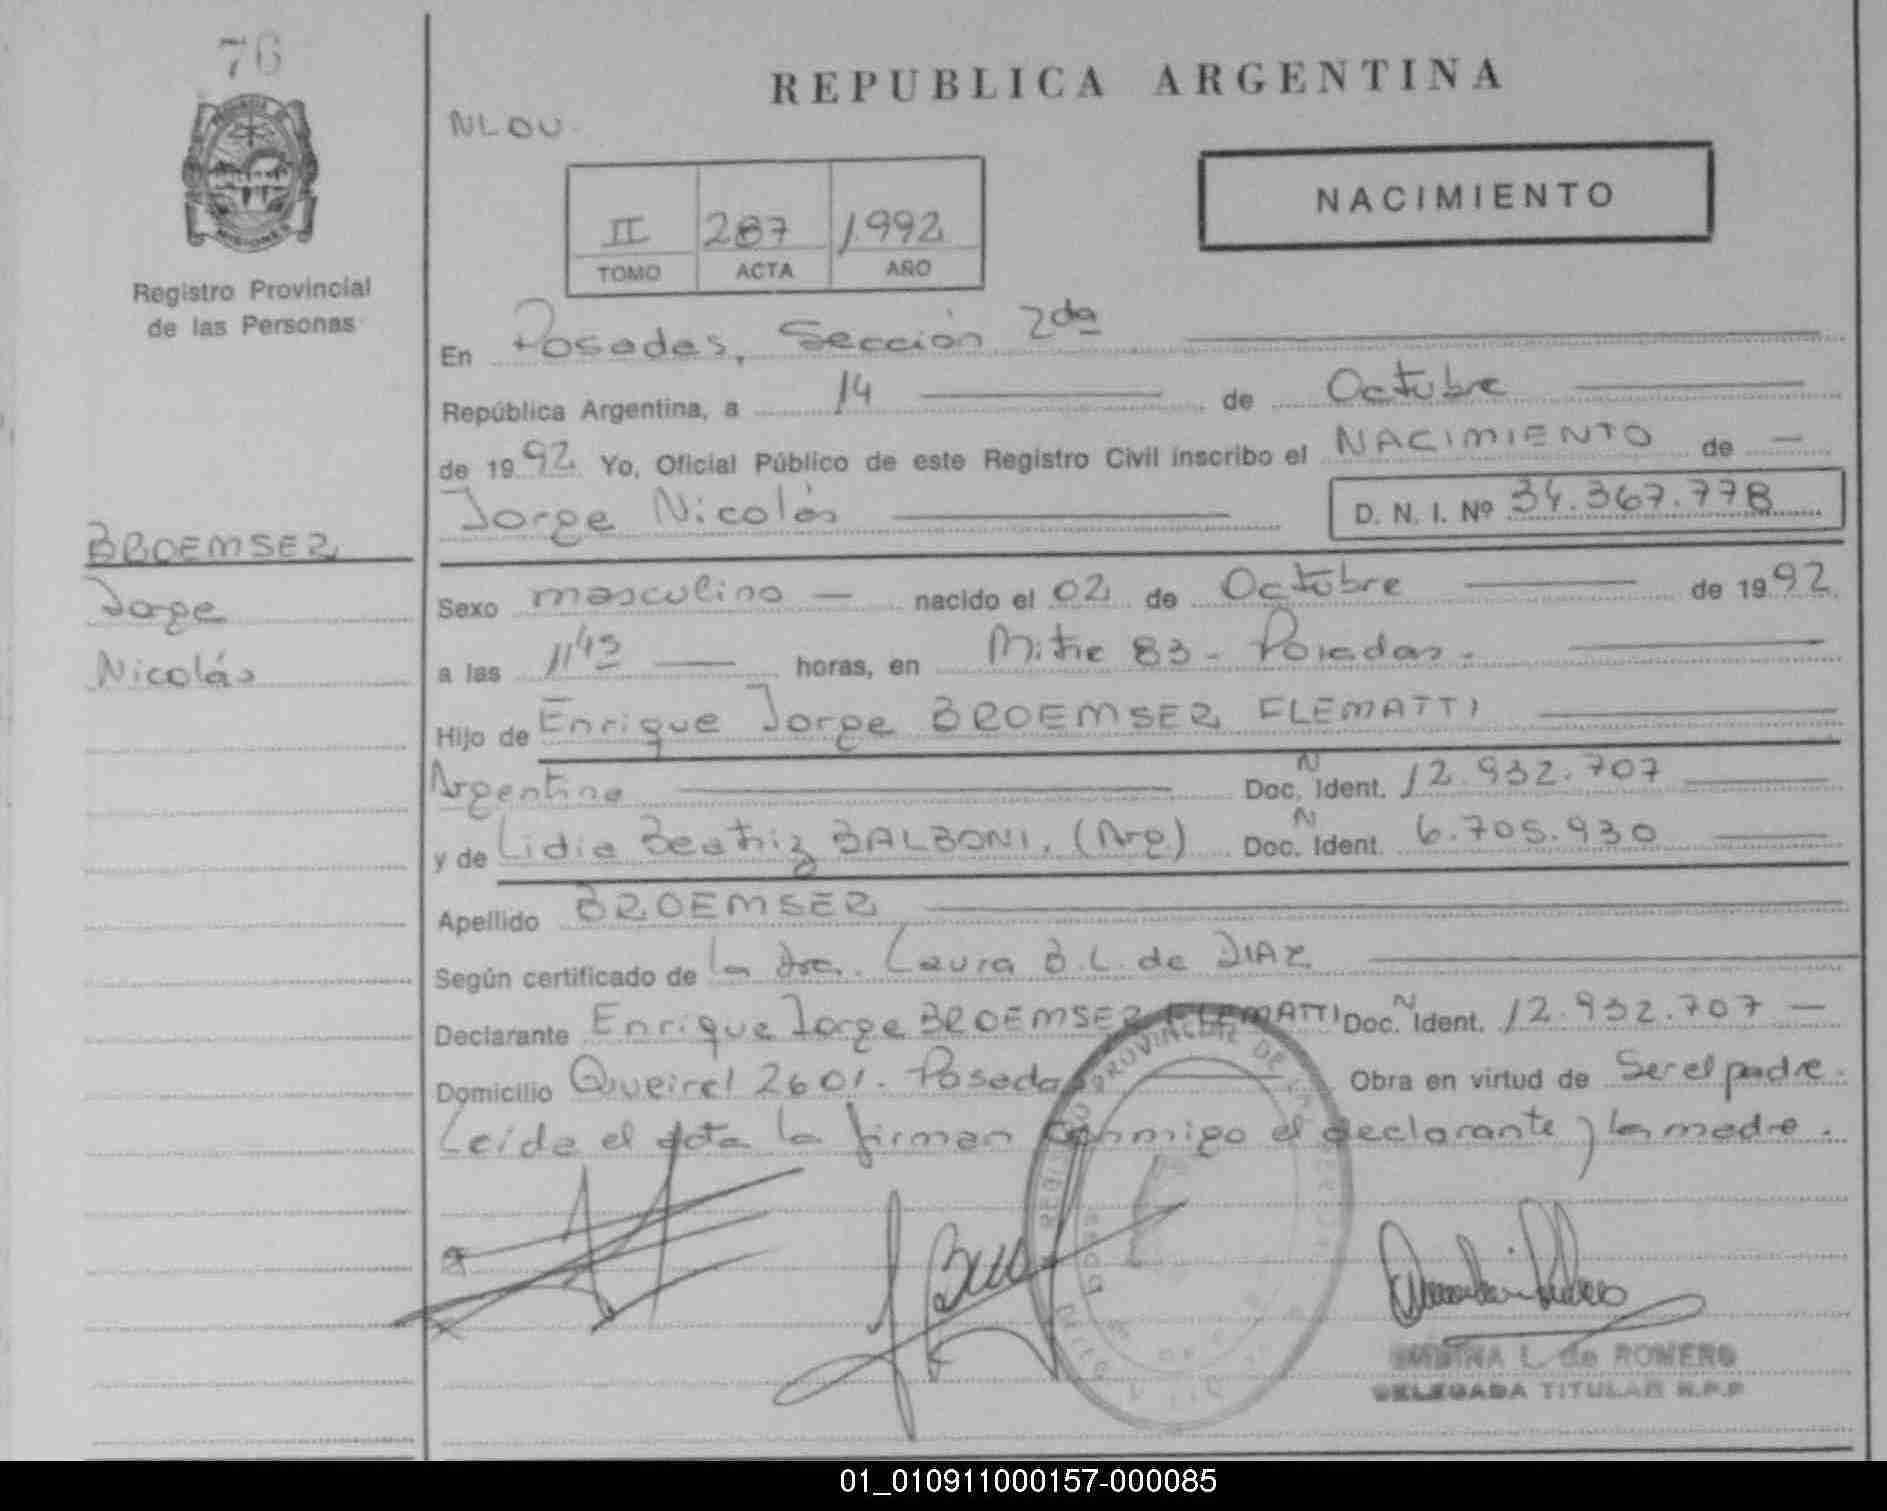 76
REPUBLICA ARGENTINA
NLOU.
NACIMIENTO
II 287 1992
TOMO ACTA AÑO
MISIONES
Registro Provincial
de las Personas
En Posadas, Sección 2da
República Argentina, a 14 de Octubre
de 1992 Yo, Oficial Público de este Registro Civil inscribo el NACIMIENTO de —
Jorge Nicolás D. N. I. Nº 34.367.778
BROEMSER
Jorge
Nicolás
Sexo masculino — nacido el 02 de Octubre de 1992.
a las 11 45 horas, en Mitre 83 - Posadas.
Hijo de Enrique Jorge BROEMSER FLEMATTI
Argentino Doc. N Ident. 12.932.707
y de Lidia Beatriz BALBONI, (Arg) Doc. N Ident. 6.705.930
Apellido BROEMSER
Según certificado de la dra. Laura B. L. de DIAZ
Declarante Enrique Jorge BROEMSER FLEMATTI Doc. N Ident. 12.932.707 —
Domicilio Queirel 2601. Posadas Obra en virtud de Ser el padre.
Leida el acta la firman conmigo el declarante y la madre.
REGISTRO PROVINCIAL DE LAS PERSONAS
L. de ROMERO
DELEGADA TITULAR R.P.P
01_010911000157-000085